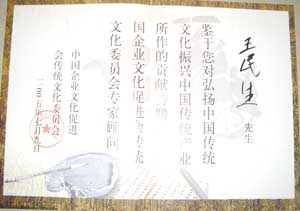 王民生 先生
鉴于您对弘扬中国传统
文化振兴中国传统产业
所作的贡献
国企业文化促进会传统
文化委员会专家顾问
中国企业文化促进
会传统文化委员会
二〇〇五年七月